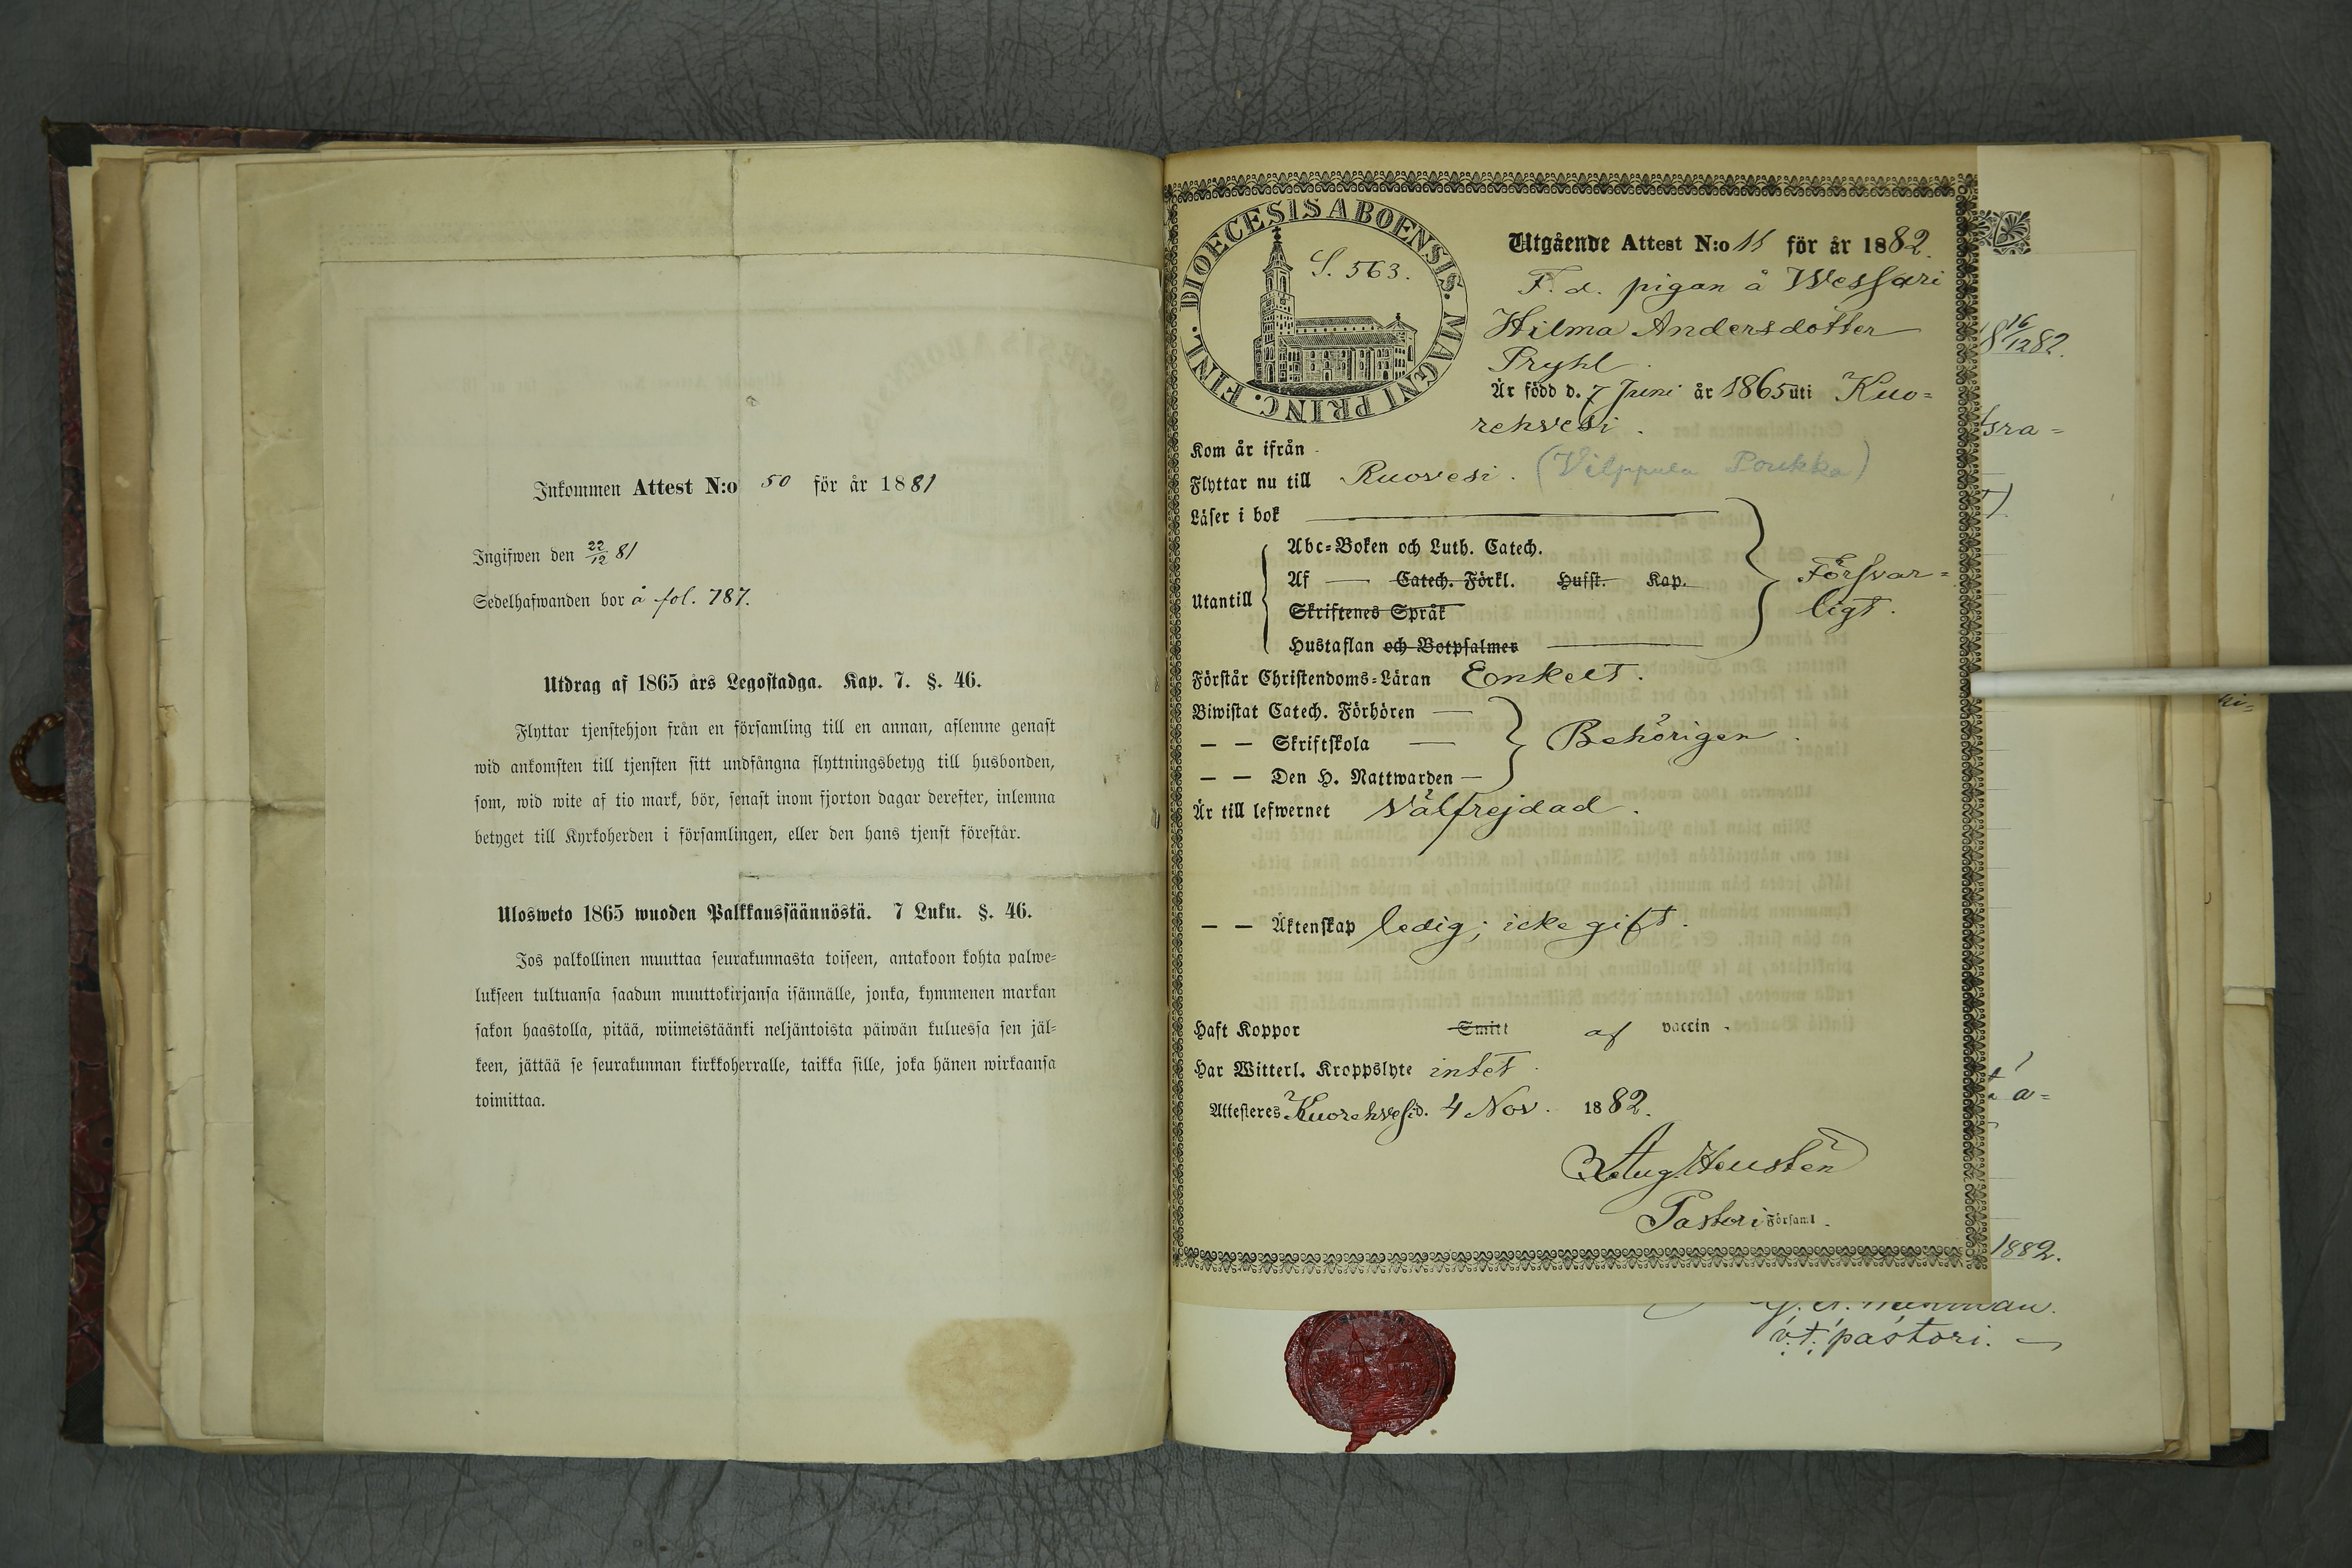 Inkommen Attest N:o 50 för år 1881
Ingifwen den 22/12 81
Sedelhafwanden bor å fol. 787.
Utdrag af 1865 års Legostadga. Kap. 7. §. 46.
Flyttar tjenstehjon från en församling till en annan, aflemne genast
wid ankomsten till tjensten sitt undfångna flyttningsbetyg till husbonden,
som, wid wite af tio mark, bör, senast inom fjorton dagar derefter, inlemna
betyget till Kyrkoherden i församlingen, eller den hans tjenst förestår.
Ulosweto 1865 wuoden Palkkaussäännöstä. 7 Luku. §. 46.
Jos palkollinen muuttaa seurakunnasta toiseen, antakoon kohta palwe=
lukseen tultuansa saadun muuttokirjansa isännälle, jonka, kymmenen markan
sakon haastolla, pitää, wiimeistäänki neljäntoista päiwän kuluessa sen jäl=
keen, jättää se seurakunnan kirkkoherralle, taikka sille, joka hänen wirkaansa
toimittaa.
DIOECESIS ABOENSIS. MAGNI PRINC. FINL.
S. 563.
Utgående Attest N:o 11 för år 1882.
F. d. pigan å Wessari
Hilma Andersdotter
Pryhl.
Är född d. 7 Juni år 1865 uti Kuo=
rehvesi.
Kom år ifrån
Flyttar nu till Ruovesi. (Vilppula Poukka)
Läser i bok
Abc=Boken och Luth. Catech.
Af — Catech. Förkl. Husst. Kap.
Utantill
Skriftenes Språk
Hustaflan och Botpsalmer
Försvar=
ligt.
Förstår Christendoms=Läran Enkelt.
Biwistat Catech. Förhören —
— — Skriftskola —
— — Den H. Nattwarden —
Behörigen.
Är till lefwernet Välfrejdad.
— — Äktenskap ledig; icke gift.
Haft Koppor Smitt af vaccin.
Har Witterl. Kroppslyte intet.
Attesteras Kuorehvesi d. 4 Nov. 1882.
Aug. Heusten
Pastor i Församl.
16/12 82.
sra=
a=
1882.
v.t. pastori.